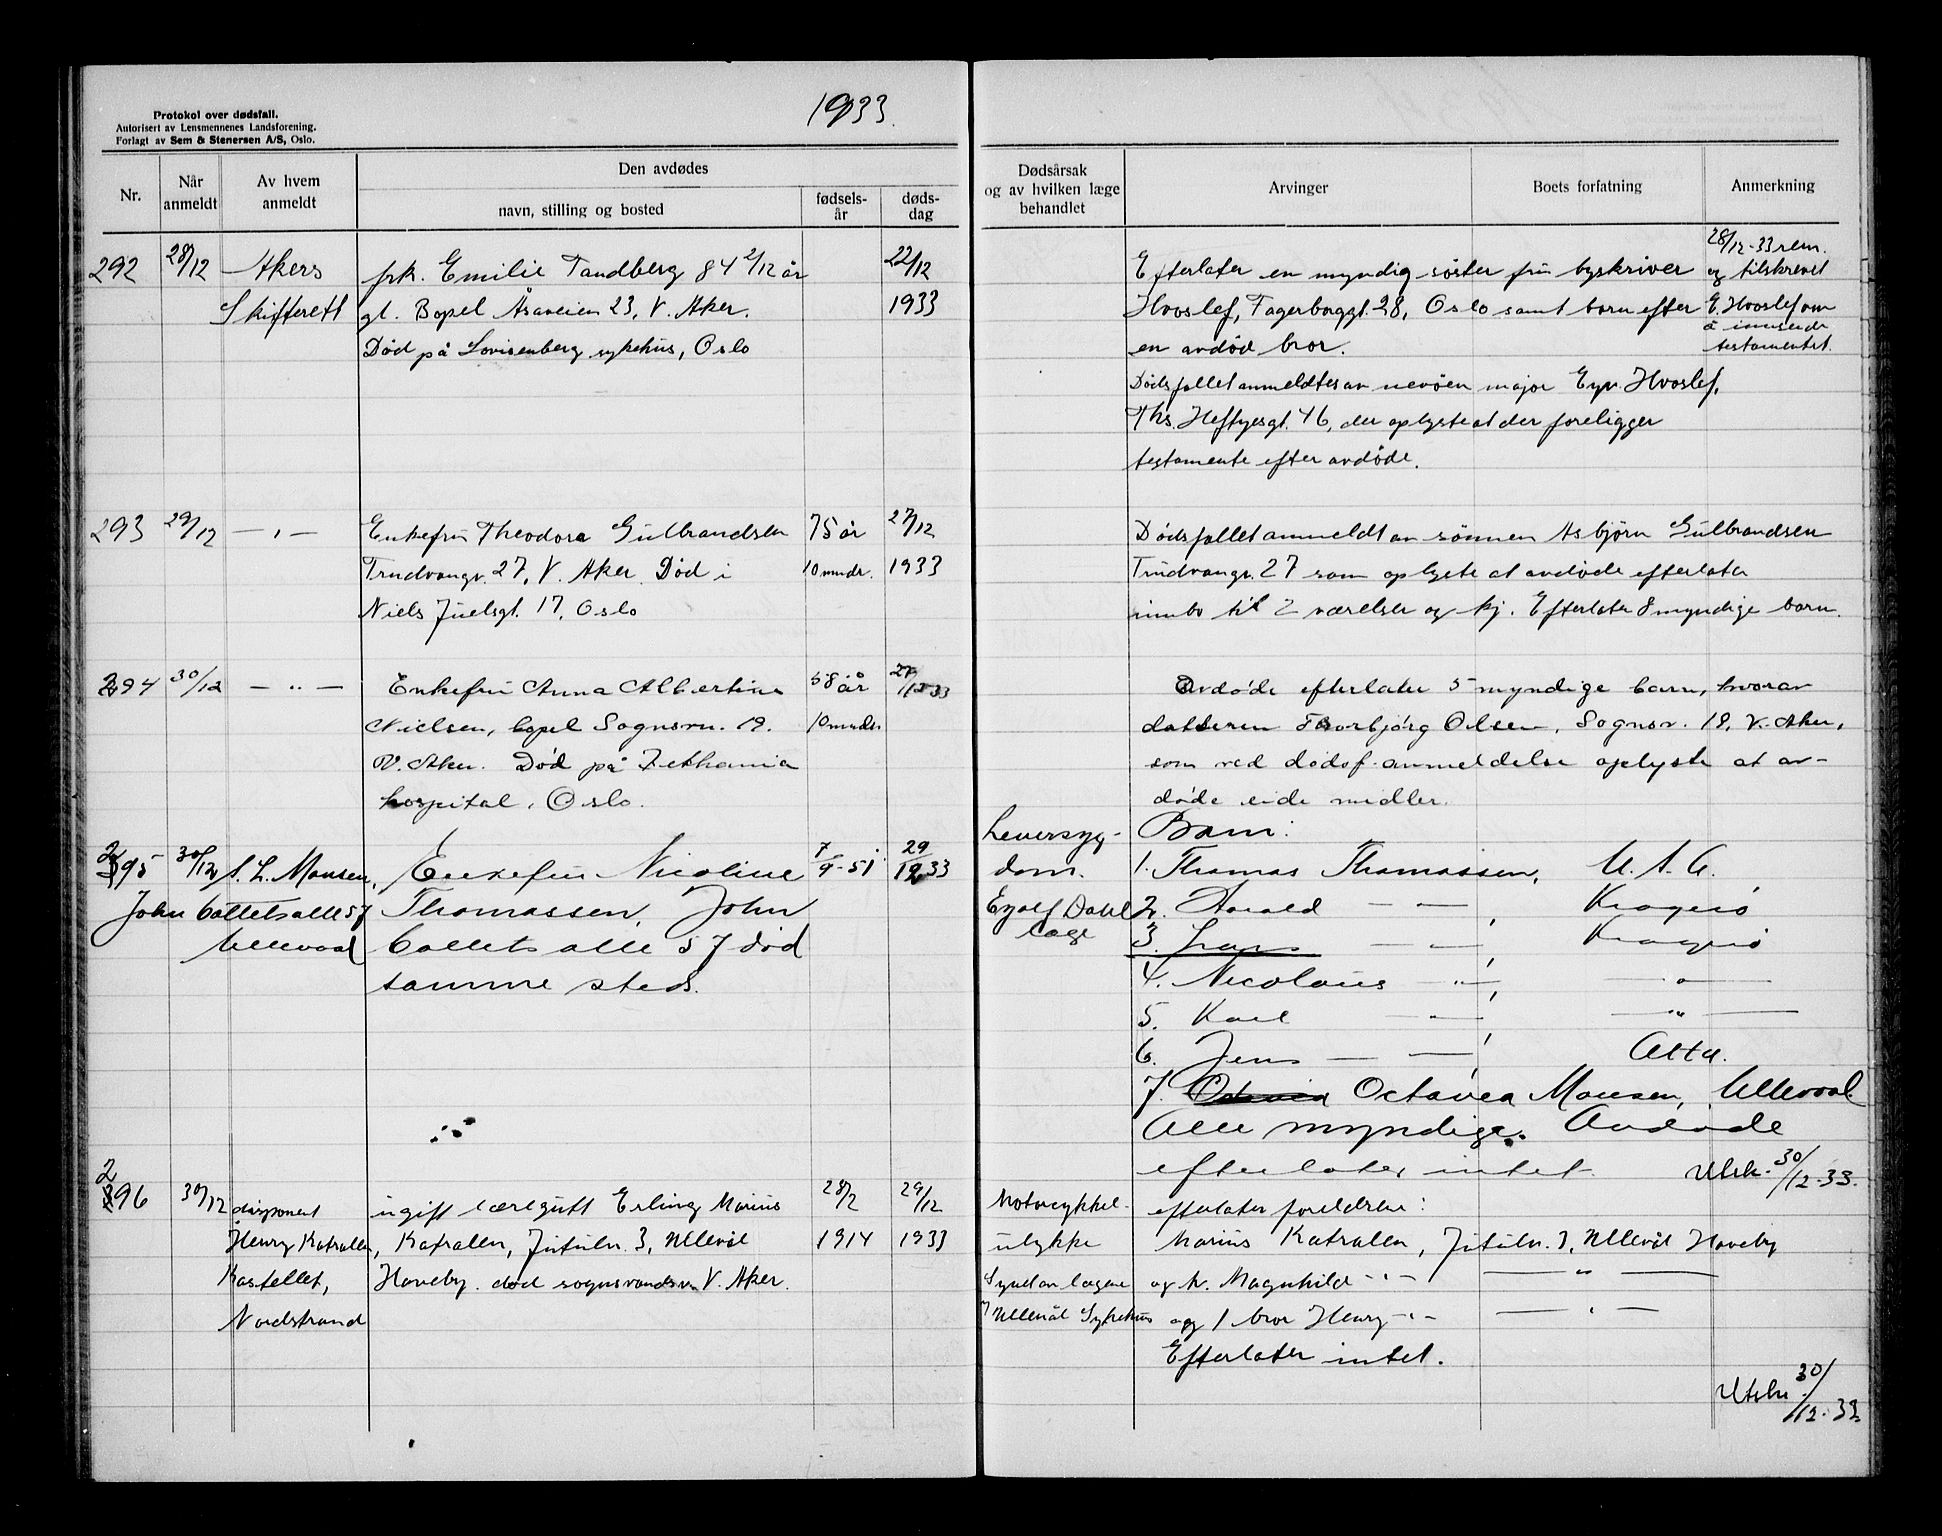 Protokol over dødsfall.
Autorisert av Lensmennenes Landsforening.
Forlagt av Sem & Stenersen A/S, Oslo.
1933.
Nr.
Når anmeldt
Av hvem anmeldt
Den avdødes
navn, stilling og bosted
fødsels-år
døds-dag
Dødsårsak og av hvilken læge behandlet
Arvinger
Boets forfatning
Anmerkning
292 28/12 Akers frk. Emilie Tandberg 84 2/12 år 22/12
Skifterett gt. Bopel Åsaveien 23, V. Aker. 1933
Død på Lovisenberg sykehus, Oslo
Efterlater en myndig søster fru byskriver
Hvoslef, Fagerborggt. 28, Oslo samt barn efter
en avdød bror.
Dødsfallet anmeldtes av nevøen major Eyv. Hvoslef,
Ths. Heftyesgt. 46, der oplyste at der foreligger
testamente efter avdøde.
28/12-33 rem.
og tilskrevet
E. Hvoslef om
å innsende
testamentet.
293 29/12 — „ — Enkefru Theodora Gulbrandsen 75 år 27/12
Trudvangv. 27, V. Aker. Død i 10 mndr. 1933
Niels Juelsgt. 17, Oslo
Dødsfallet anmeldt av sønnen Asbjørn Gulbrandsen
Trudvangv. 27 som oplyste at avdøde efterlater
innbo til 2 værelser og kj. Efterlater 8 myndige barn.
294 30/12 — „ — Enkefru Anna Albertine 58 år 27/12 33
Nielsen, bopel Sognsvn. 19. 10 mndr.
V. Aker. Død på Bethania
hospital, Oslo.
Avdøde efterlater 5 myndige barn, hvorav
datteren Thorbjørg Olsen, Sognsv. 19, V. Aker,
som ved dødsf. anmeldelse oplyste at av-
døde eide midler.
295 30/12 S. L. Monsen, Enkefru Nicoline 7/9-51 29/12 33
John Collets alle 57 Thomassen, John
Ullevaal Collets alle 57 død
samme sted.
Leversyg-
dom.
Eyolf Dahl
læge
Barn:
1. Thomas Thomassen, U.S.A.
2. Harald — „ — , Kragerø
3. Lars — „ — , Kragerø
4. Nicolaus — „ — , — „ —
5. Karl — „ — , — „ —
6. Jens — „ — , Alta.
7. Octavia Monsen, Ullevaal
Alle myndige. Avdøde
efterlater intet. Utsk. 30/12-33.
296 30/12 disponent ugift læregutt Erling Marius 28/2 29/12
Henry Katralen, Katralen, Jutulv. 3, Ullevål 1914 1933
Kastellet, Haveby. død sognsvandsvn V. Aker.
Nordstrand
Motorcykkel-
ulykke
Synd av lægene
Ullevål Sykehus
efterlater foreldrene:
Marius Katralen, Jutulv. 3, Ullevål Haveby
og h. Magnhild — „ — — „ —
og 1 bror Henry — „ — — „ —
Efterlater intet.
Utskr. 30/12-33.